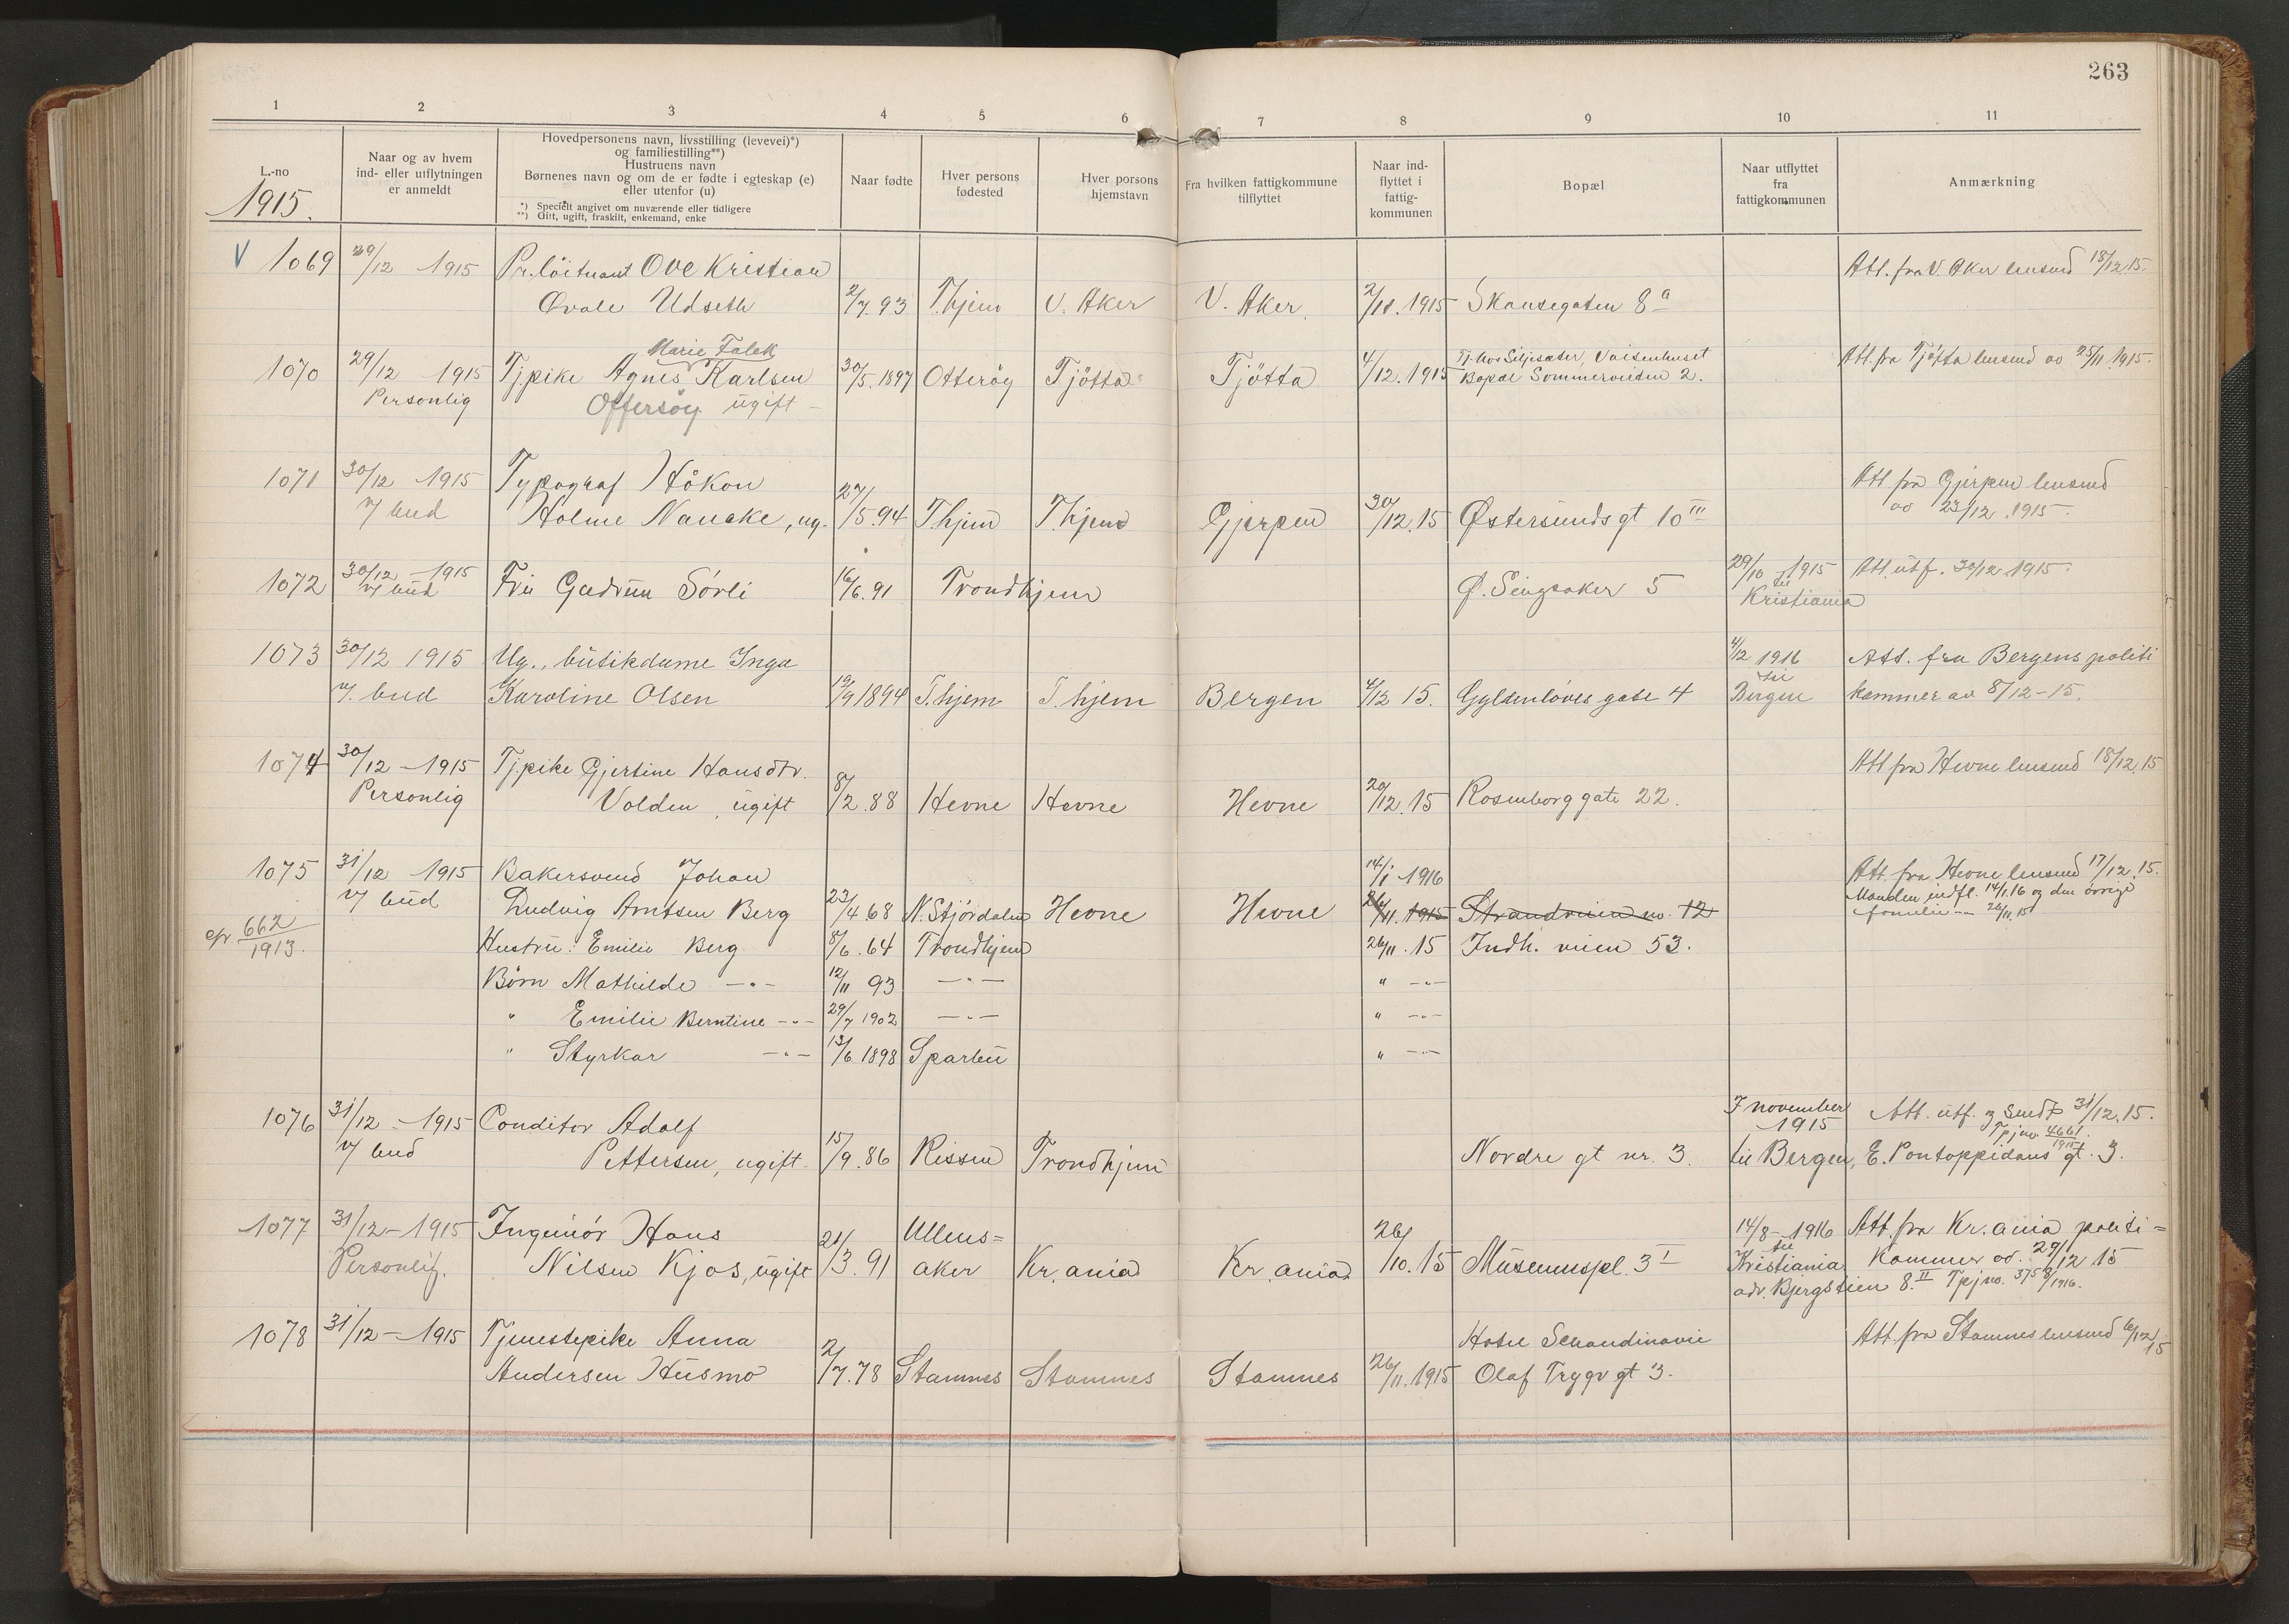 263
1 2 3 4 5 6 7 8 9 10 11
L.-no
1915.
Naar og av hvem
ind- eller utflytningen
er anmeldt
Hovedpersonens navn, livsstilling (levevei)*)
og familiestilling**)
Hustruens navn
Børnenes navn og om de er fødte i egteskap (e)
eller utenfor (u)
*) Specielt angivet om nuværende eller tidligere
**) Gift, ugift, fraskilt, enkemand, enke
Naar fødte
Hver persons
fødested
Hver porsons
hjemstavn
Fra hvilken fattigkommune
tilflyttet
Naar ind-
flyttet i
fattig-
kommunen
Bopæl
Naar utflyttet
fra
fattigkommunen
Anmærkning
V 1069 29/12 1915 Pr. löitnant Ove Kristian Att. fra V. Aker lensmd 18/12 15.
Øvale Udseth 2/7. 93 T.hjem V. Aker V. Aker. 2/10. 1915 Skansegaten 8a
Marie Falck Tj. hos Siljesæter, Vaisenhuset
1070 29/12 1915 Tj.pike Agnes Karlsen 30/5. 1897 Otteröy Tjötta Tjötta 4/12. 1915 Bopæl Sommerveiten 2. Att. fra Tjötta lensmd av 25/11 1915.
Personlig Offersöy ugift
1071 30/12 1915 Typograf Håkon Att fra Gjerpen lensmd
v/ bud Holme Naucke, ug. 27/5. 94 T.hjem T.hjem Gjerpen 30/12. 15 Østersunds gt 10 III av 23/12. 1915
1072 30/12 - 1915 Fru Gudrun Sörli 16/6. 91 Trondhjem Ø. Singsaker 5 29/10 - 1915 Att. utf. 30/12 1915.
v/ bud til
Kristiania
1073 30/12 1915 Ug., butikdame Inga 4/12 1916 Att. fra Bergens politi
v. bud Karoline Olsen 19/9 1894 T.hjem T.hjem Bergen 4/12 15. Gyldenlöves gate 4 til Bergen kammer av 8/12-15.
1074 30/12 - 1915 Tj.pike Gjertine Hansdtr. Att fra Hevne lensmd 18/12. 15
Personlig Volden, ugift 8/2. 88 Hevne Hevne Hevne 20/12. 15 Rosenborg gate 22.
1075 31/12 1915 Bakersvend Johan 14/1 1916 Att. fra Hevne lensmd 17/12. 15.
v/ bud Ludvig Arntsen Berg 23/4 68 N. Stjördalen Hevne Hevne 26/11. 1915 Strandveien no. 12 Manden indfl. 14/1.16 og den övrige
familie 26/11.15
cfr 662/1913. Hustru: Emilie Berg 8/6. 64 Trondhjem 26/11. 15 Indh. veien 53.
Börn Mathilde -"- 12/11 93 -"- " -"-
" Emilie Berntine -"- 29/7 1902 -"- " -"-
" Styrkar -"- 13/6 1898 Sparbu " -"-
1076 31/12 - 1915 Conditor Adolf I november 1915 Att. utf. og sendt 31/12. 15.
Tpj no. 4661/1915
v/ bud Pettersen, ugift. 15/9. 86 Rissen Trondhjem Nordre gt nr. 3. til Bergen, E. Pontoppidans gt. 3.
1077 31/12 - 1915 Ingeniör Hans Ullens= 14/8 - 1916 Att. fra Kr.ania politi=
Personlig. Nilsen Kjos, ugift 21/3. 91 aker Kr.ania Kr.ania 26/10. 15 Museumspl. 3 I til Kristiania kammer av. 29/12 15
adr. Bjergstien 8. II Tpj no. 3758/1916.
1078 31/12 - 1915 Tjenestepike Anna Hotel Scandinavie Att. fra Stamnes lensmd 6/12 15
Andersen Husmo 2/7. 78 Stamnes Stamnes Stamnes 26/11. 1915 Olaf Trygv gt 3.